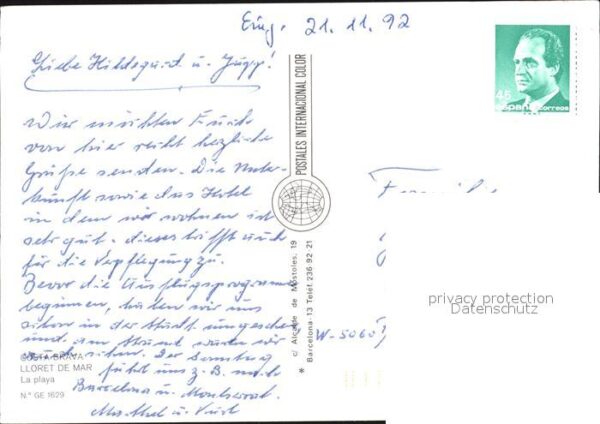 Eing. 21.11.92
Liebe Hildegard u. Jupp!
Wir möchten Euch
von hier recht herzliche
Grüße senden. Die Unter-
kunft sowie das Hotel
in dem wir wohnen ist
sehr gut. dieses trifft auch
für die Verpflegung zu.
Bevor die Ausflugsprogramme
beginnen, haben wir uns
schon in der Stadt umgesehen
und am Strand waren wir
auch schon. Der Samstag
führt uns z. B. nach
Barcelona u. Montserrat.
COSTA BRAVA
LLORET DE MAR
La playa
N.º GE 1629
POSTALES INTERNACIONAL COLOR
c/ Alcalde de Móstoles, 19
* Barcelona-13 Telef. 236 92 21
45
españa correos
W-5060
privacy protection
Datenschutz